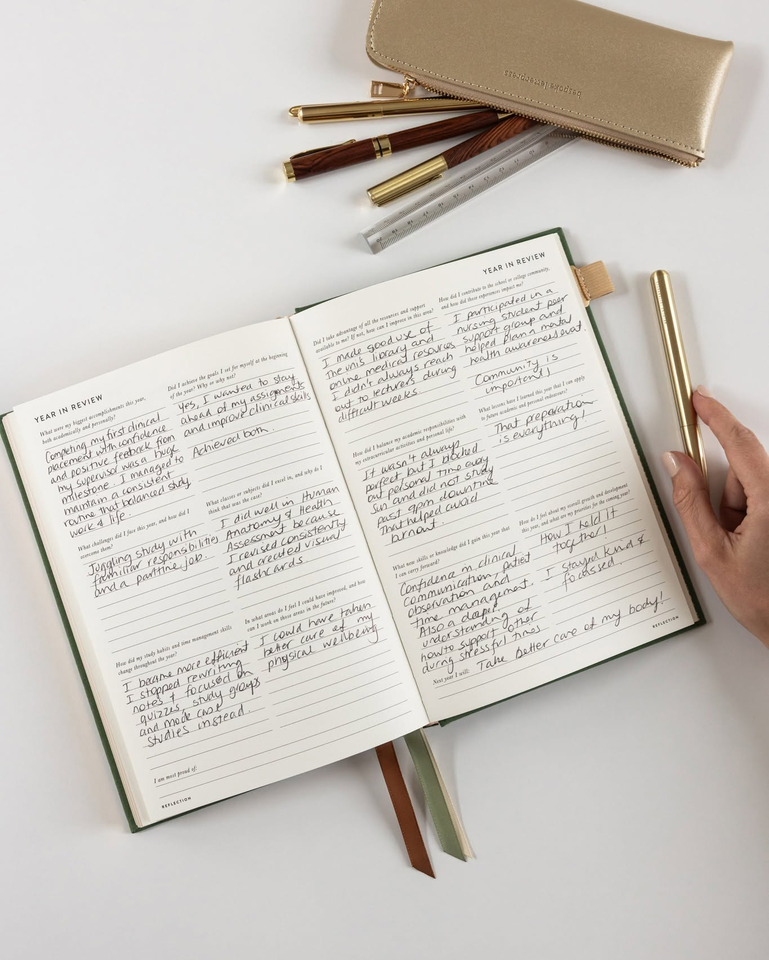 bespoke letterpress
YEAR IN REVIEW
What were my biggest accomplishments this year,
both academically and personally?
Completing my first clinical
placement with confidence
and positive feedback from
my supervisor was a huge
milestone. I managed to
maintain a consistent
routine that balanced study
work & life.
What challenges did I face this year, and how did I
overcome them?
Juggling study with
familiar responsibilities
and a partime job.
How did my study habits and time management skills
change throughout the year?
I became more efficient
I stopped rewriting
notes & focused on
quizzes, study groups
and made case
studies instead.
I am most proud of:
REFLECTION
Did I achieve the goals I set for myself at the beginning
of the year? Why or why not?
Yes, I wanted to stay
ahead of my assignments
and improve clinical skills
Achieved both.
What classes or subjects did I excel in, and why do I
think that was the case?
I did well in Human
Anatomy & Health
Assessment because
I revised consistently
and created visual
flashcards
In what areas do I feel I could have improved, and how
can I work on those areas in the future?
I could have taken
better care of my
physical wellbeing
YEAR IN REVIEW
Did I take advantage of all the resources and support
available to me? If not, how can I improve in this area?
I made good use of
the uni's library and
online medical resources
I didn't always reach
out to lecturers during
difficult weeks
How did I balance my academic responsibilities with
my extracurricular activities and personal life?
It wasn't always
perfect, but I blocked
out personal time every
Sun and did not study
past 9pm downtime
That helped avoid
burnout.
What new skills or knowledge did I gain this year that
I can carry forward?
Confidence in clinical
communication, patient
observation and
time management.
Also a deeper
understanding of
how to support other
during stressful times
Next year I will: Take better care of my body!
How did I contribute to the school or college community,
and how did these experiences impact me?
I participated in a
nursing student peer
support group and
helped plan a mental
health awareness event.
Community is
important!
What lessons have I learned this year that I can apply
to future academic and personal endeavours?
That preparation
is everything!
How do I feel about my overall growth and development
this year, and what are my priorities for the coming year?
How I held it
together!
I stayed kind &
focussed.
REFLECTION